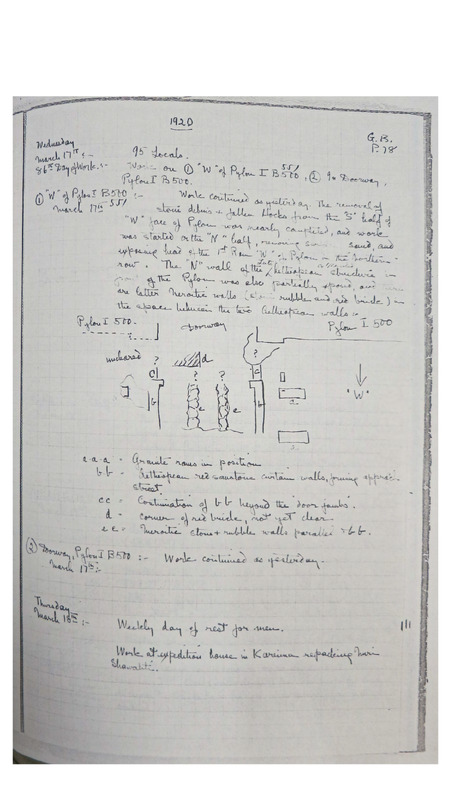 1920
G.B.
P. 78
Wednesday
March 17th :-
86th Day of Work :-
95 Locals.
Work on ① "W" of Pylon I B 500, ② In Doorway,
551
Pylon I B 500.
① "W" of Pylon I B 500 :-
March 17th 551
Work continued as yesterday. The removal of
stone debris & fallen blocks from the "S" half of
"W" face of Pylon was nearly completed, and work
was started on the "N" half, removing sand, and
exposing head of the 1st Ram "W" of Pylon in the Northern
row. The "N" wall of the late Aethiopean structure in
of the Pylon was also partially exposed, and
are later Meroitic walls ( rubble and red bricks) in
the space between the two Aethiopean walls :-
Pylon I 500.
Doorway
Pylon I 500
uncleared
?
?
d
c
c
?
?
b
e
e
b
a
"W"
a-a-a = Granite rams in position
b b = Aethiopean red sandstone curtain walls, forming approach
street.
c c = Continuation of b b beyond the door jambs.
d = corner of red brick, not yet clear.
e e = Meroitic stone & rubble walls parallel to b b.
② Doorway, Pylon I B 500 :- Work continued as yesterday.
March 17th :-
Thursday
March 18th :-
Weekly day of rest for men.
Work at expedition house in Kareima repacking Nuri
Shawabti.